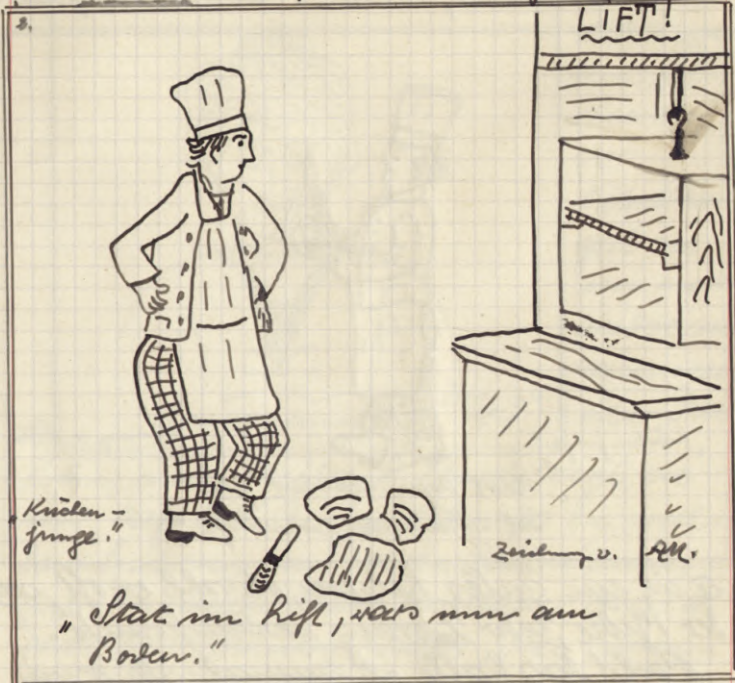 2.
LIFT!
"Küchen-
junge."
Zeichnung v. AM.
"Stat im Lift, wars nun am
Boden."